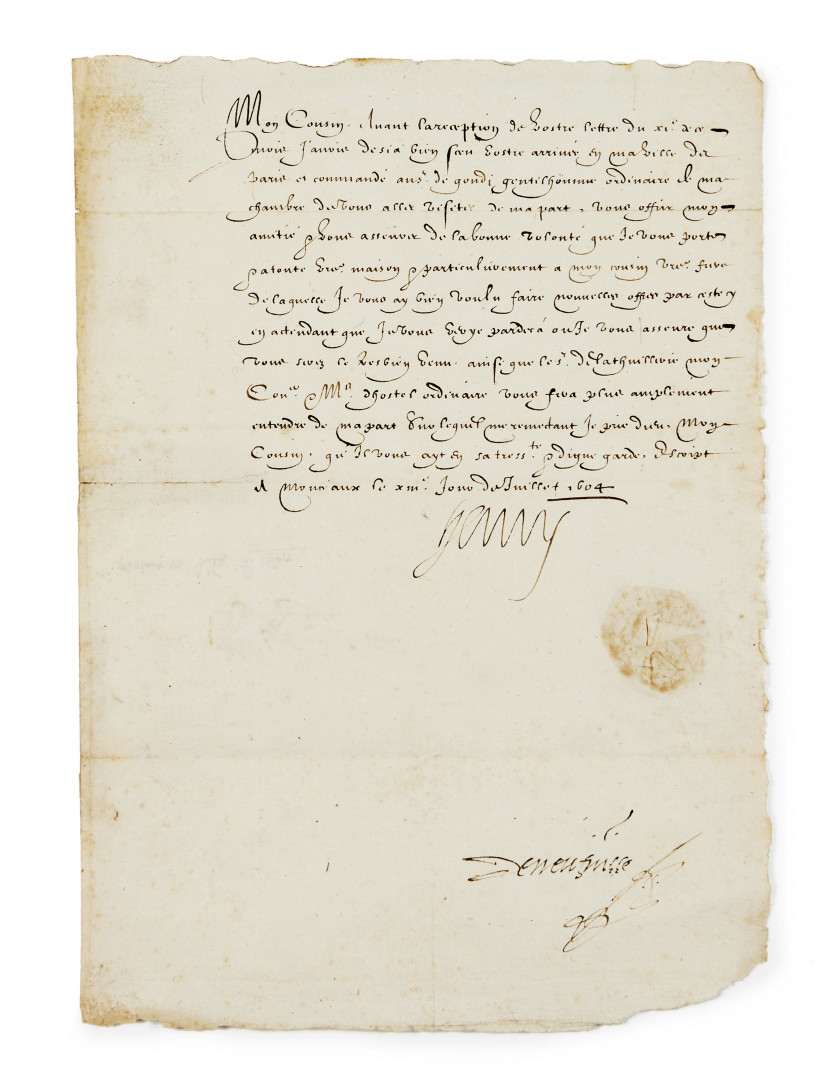 Mon Cousin. Avant la reception de vostre lettre du xi.e de ce
mois J'avois desia bien sceu vostre arrivée en ma ville de
Paris et commandé au s.r de gondi gentilhomme ordinaire de ma
chambre de vous aller visiter de ma part, vous offrir mon
amitié & vous asseurer de la bonne volonté que Je vous porte
& a toute vre. maison & particulierement a mon cousin vre. frere
de laquelle Je vous ay bien voulu faire nouvelles offres par cestecy
en actendant que Je vous voye pardeça ou Je vous asseure que
vous serez le tresbien venu ainsi que le s.r de la thuillerie mon
Con.er & M.e d'hostel ordinaire vous fera plus amplement
entendre de ma part Sur lequel me remectant Je prie dieu, Mon
Cousin, qu'Il vous ayt en sa tress.te & digne garde, Escript
A Monceaux le xiii.e Jour de Juillet 1604
Henry
De neufville